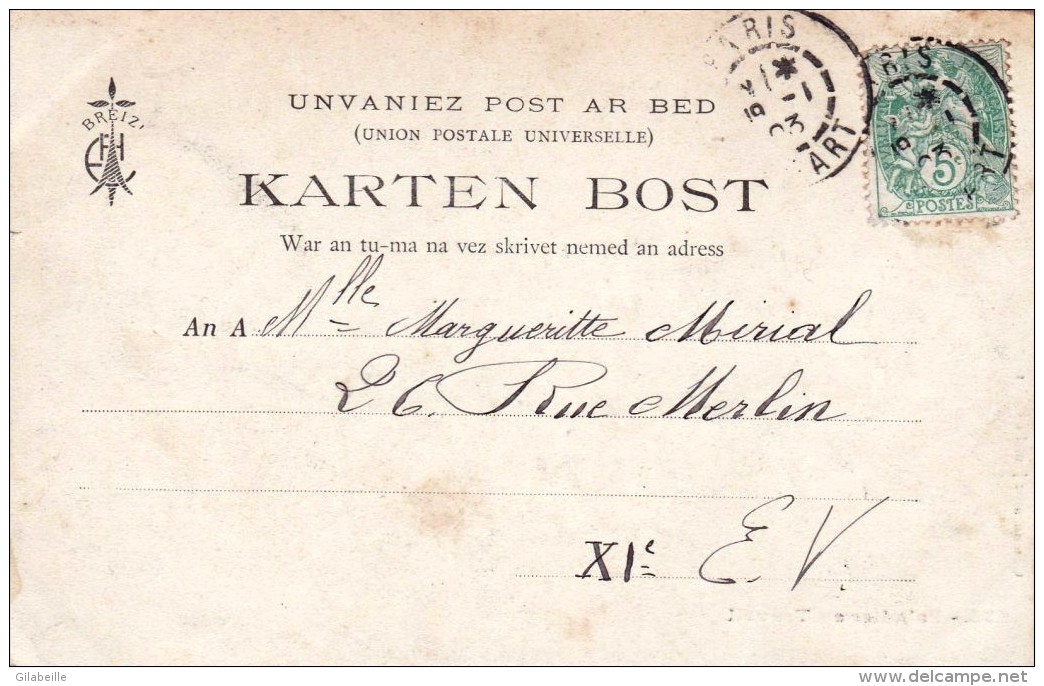 BREIZ'
UNVANIEZ POST AR BED
(UNION POSTALE UNIVERSELLE)
KARTEN BOST
War an tu-ma na vez skrivet nemed an adress
An A Mlle Margueritte Mirial
26. Rue Merlin
XIe E. V.
PARIS
ART
03
5c
POSTES
Gilabeille
delcampe.net